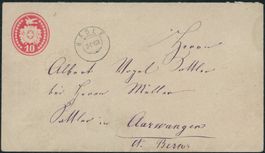 10
BASEL
Herrn
Albert Vogel Sattler
bei Herrn Müller
Sattler in Aarwangen
Ct. Bern